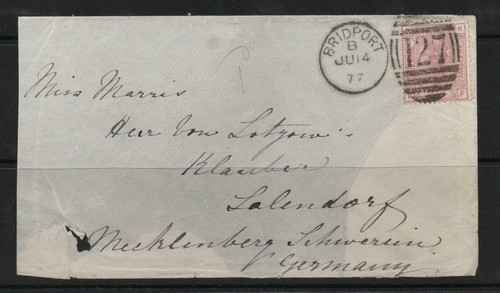 BRIDPORT
B
JU 14
77
127
K
F
Miss Marris
Herr Von Lotzow
Klauber
Salendorf
Mecklenberg Schwerin
Germany